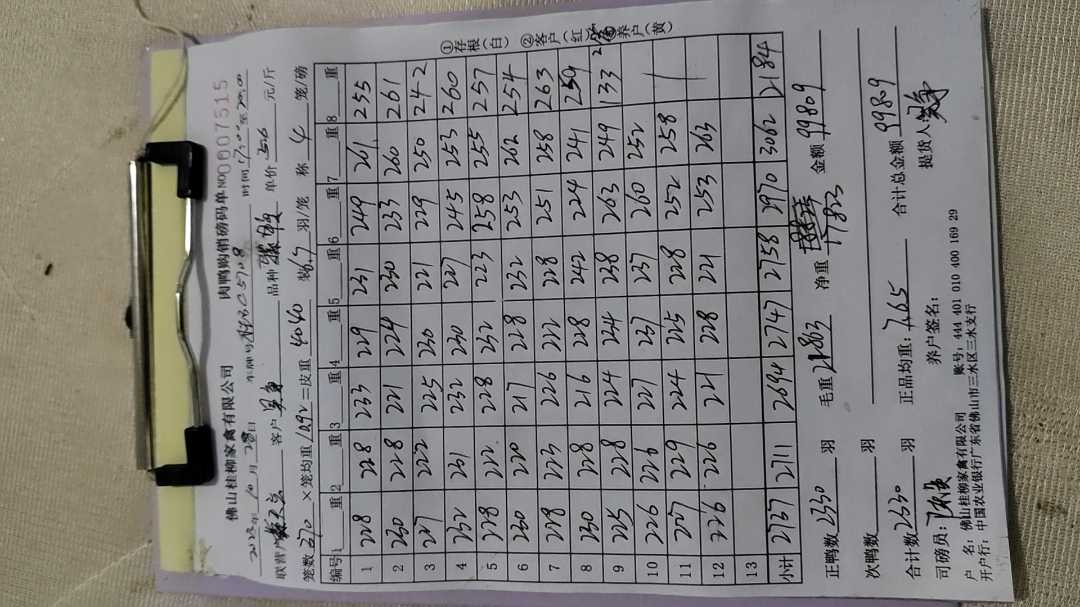 佛山桂柳家禽有限公司 肉鸭购销磅码单 NO 0007515
①存根(白) ②客户(红) ③养户(黄)
年 10 月 28 日 车牌号 时间
联营户 客户 品种 单价 元/斤
笼数 370 × 笼均重 10.92 = 皮重 4040 装 6.7 羽/笼 称 4 笼/磅
编号 1 重 2 重 3 重 4 重 5 重 6 重 7 重 8 重
1 228 228 233 229 231 249 261 255
2 230 228 221 224 230 233 260 261
3 227 222 225 230 221 229 250 242
4 232 231 232 230 227 245 253 260
5 228 212 228 232 223 258 255 257
6 230 220 217 228 232 253 262 254
7 228 223 226 222 228 251 258 263
8 230 228 216 228 242 224 241 250
9 225 228 224 224 238 263 249 133
10 226 226 227 237 237 260 252
11 227 229 224 225 228 252 258
12 226 226 221 228 221 253 263
13
小计 2737 2711 2694 2747 2758 2970 3062 2184
正鸭数 2330 羽 毛重 21863 净重 17823 金额 99809
次鸭数 羽
合计数 2330 羽 正品均重: 7.65 合计总金额 99809
司磅员: 养户签名: 提货人:
户 名: 佛山桂柳家禽有限公司 账号: 444 401 010 400 169 29
开户行: 中国农业银行广东省佛山市三水区三水支行